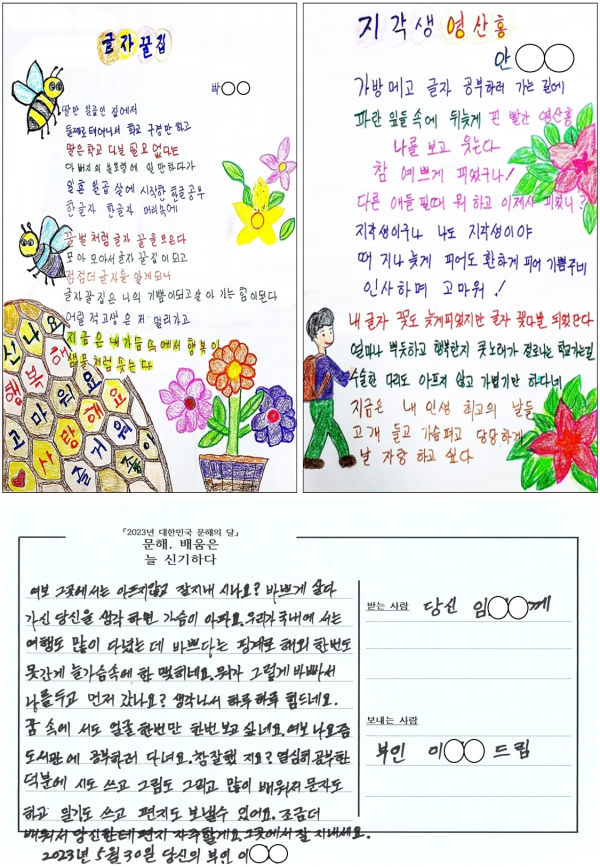 글자 꿀집
박○○
딸만 일곱인 집에서
둘째로 태어나서 학교 구경만 하고
딸은 학교 다닐 필요 없다는
아버지의 불호령에 일만 하다가
일흔 일곱 살에 시작한 한글공부
한글자 한글자 머리속에
꿀벌처럼 글자 꿀을 모은다
모아 모아서 글자 꿀집이 되고
점점더 글자를 알게되니
글자꿀집은 나의 기쁨이되고 살아가는 힘이된다
어릴적 고생은 저 멀리가고
지금은 내가슴 속에서 행복이
샘물처럼 솟는다
신나요
행복해
고마워요
사랑해요
즐거워
좋아
지각생 영산홍
안○○
가방메고 글자 공부하러 가는길에
파란 잎들속에 뒤늦게 핀 빨간 영산홍
나를 보고 웃는다
참 예쁘게 피었구나!
다른 애들 필때 뭐 하고 이제사 피었니?
지각생이구나 나도 지각생이야
때 지나 늦게 피어도 환하게 피어 기쁨주네
인사하며 고마워!
내 글자 꽃도 늦게피었지만 글자 꽃다발 되었단다
얼마나 뿌듯하고 행복한지 콧노래가 절로나는 학교가는길
수술한 다리도 아프지 않고 가볍기만 하다네
지금은 내 인생 최고의 날들
고개 들고 가슴펴고 당당하게
날 자랑 하고 싶다
「2023년 대한민국 문해의 달」
문해, 배움은
늘 신기하다
여보 그곳에서는 아프지않고 잘지내 시나요? 바쁘게 살다
가신 당신을 생각 하면 가슴이 아파요. 우리가 국내에 서는
여행도 많이 다녔는 데 바쁘다는 핑계로 해외 한번도
못간게 늘가슴속에 한 맥히네요. 뭐가 그렇게 바빠서
나를두고 먼저 갔나요? 생각나서 하루하루 힘드네요.
꿈 속에 서도 얼굴 한번만 한번 보고 싶네요. 여보 나요즘
도서관 에 공부하러 다녀요. 잘했 지요? 열심히 공부한
덕분에 시도 쓰고 그림도 그리고 많이 배워서 문자도
하고 일기도 쓰고 편지도 보낼수 있어요. 조금더
배워서 당신한테 편지 자주할게요. 그곳에서 잘 지내세요.
2023년 5월 30일 당신의 부인 이○○
받는 사람 당신 임○○께
보내는 사람
부인 이○○ 드림